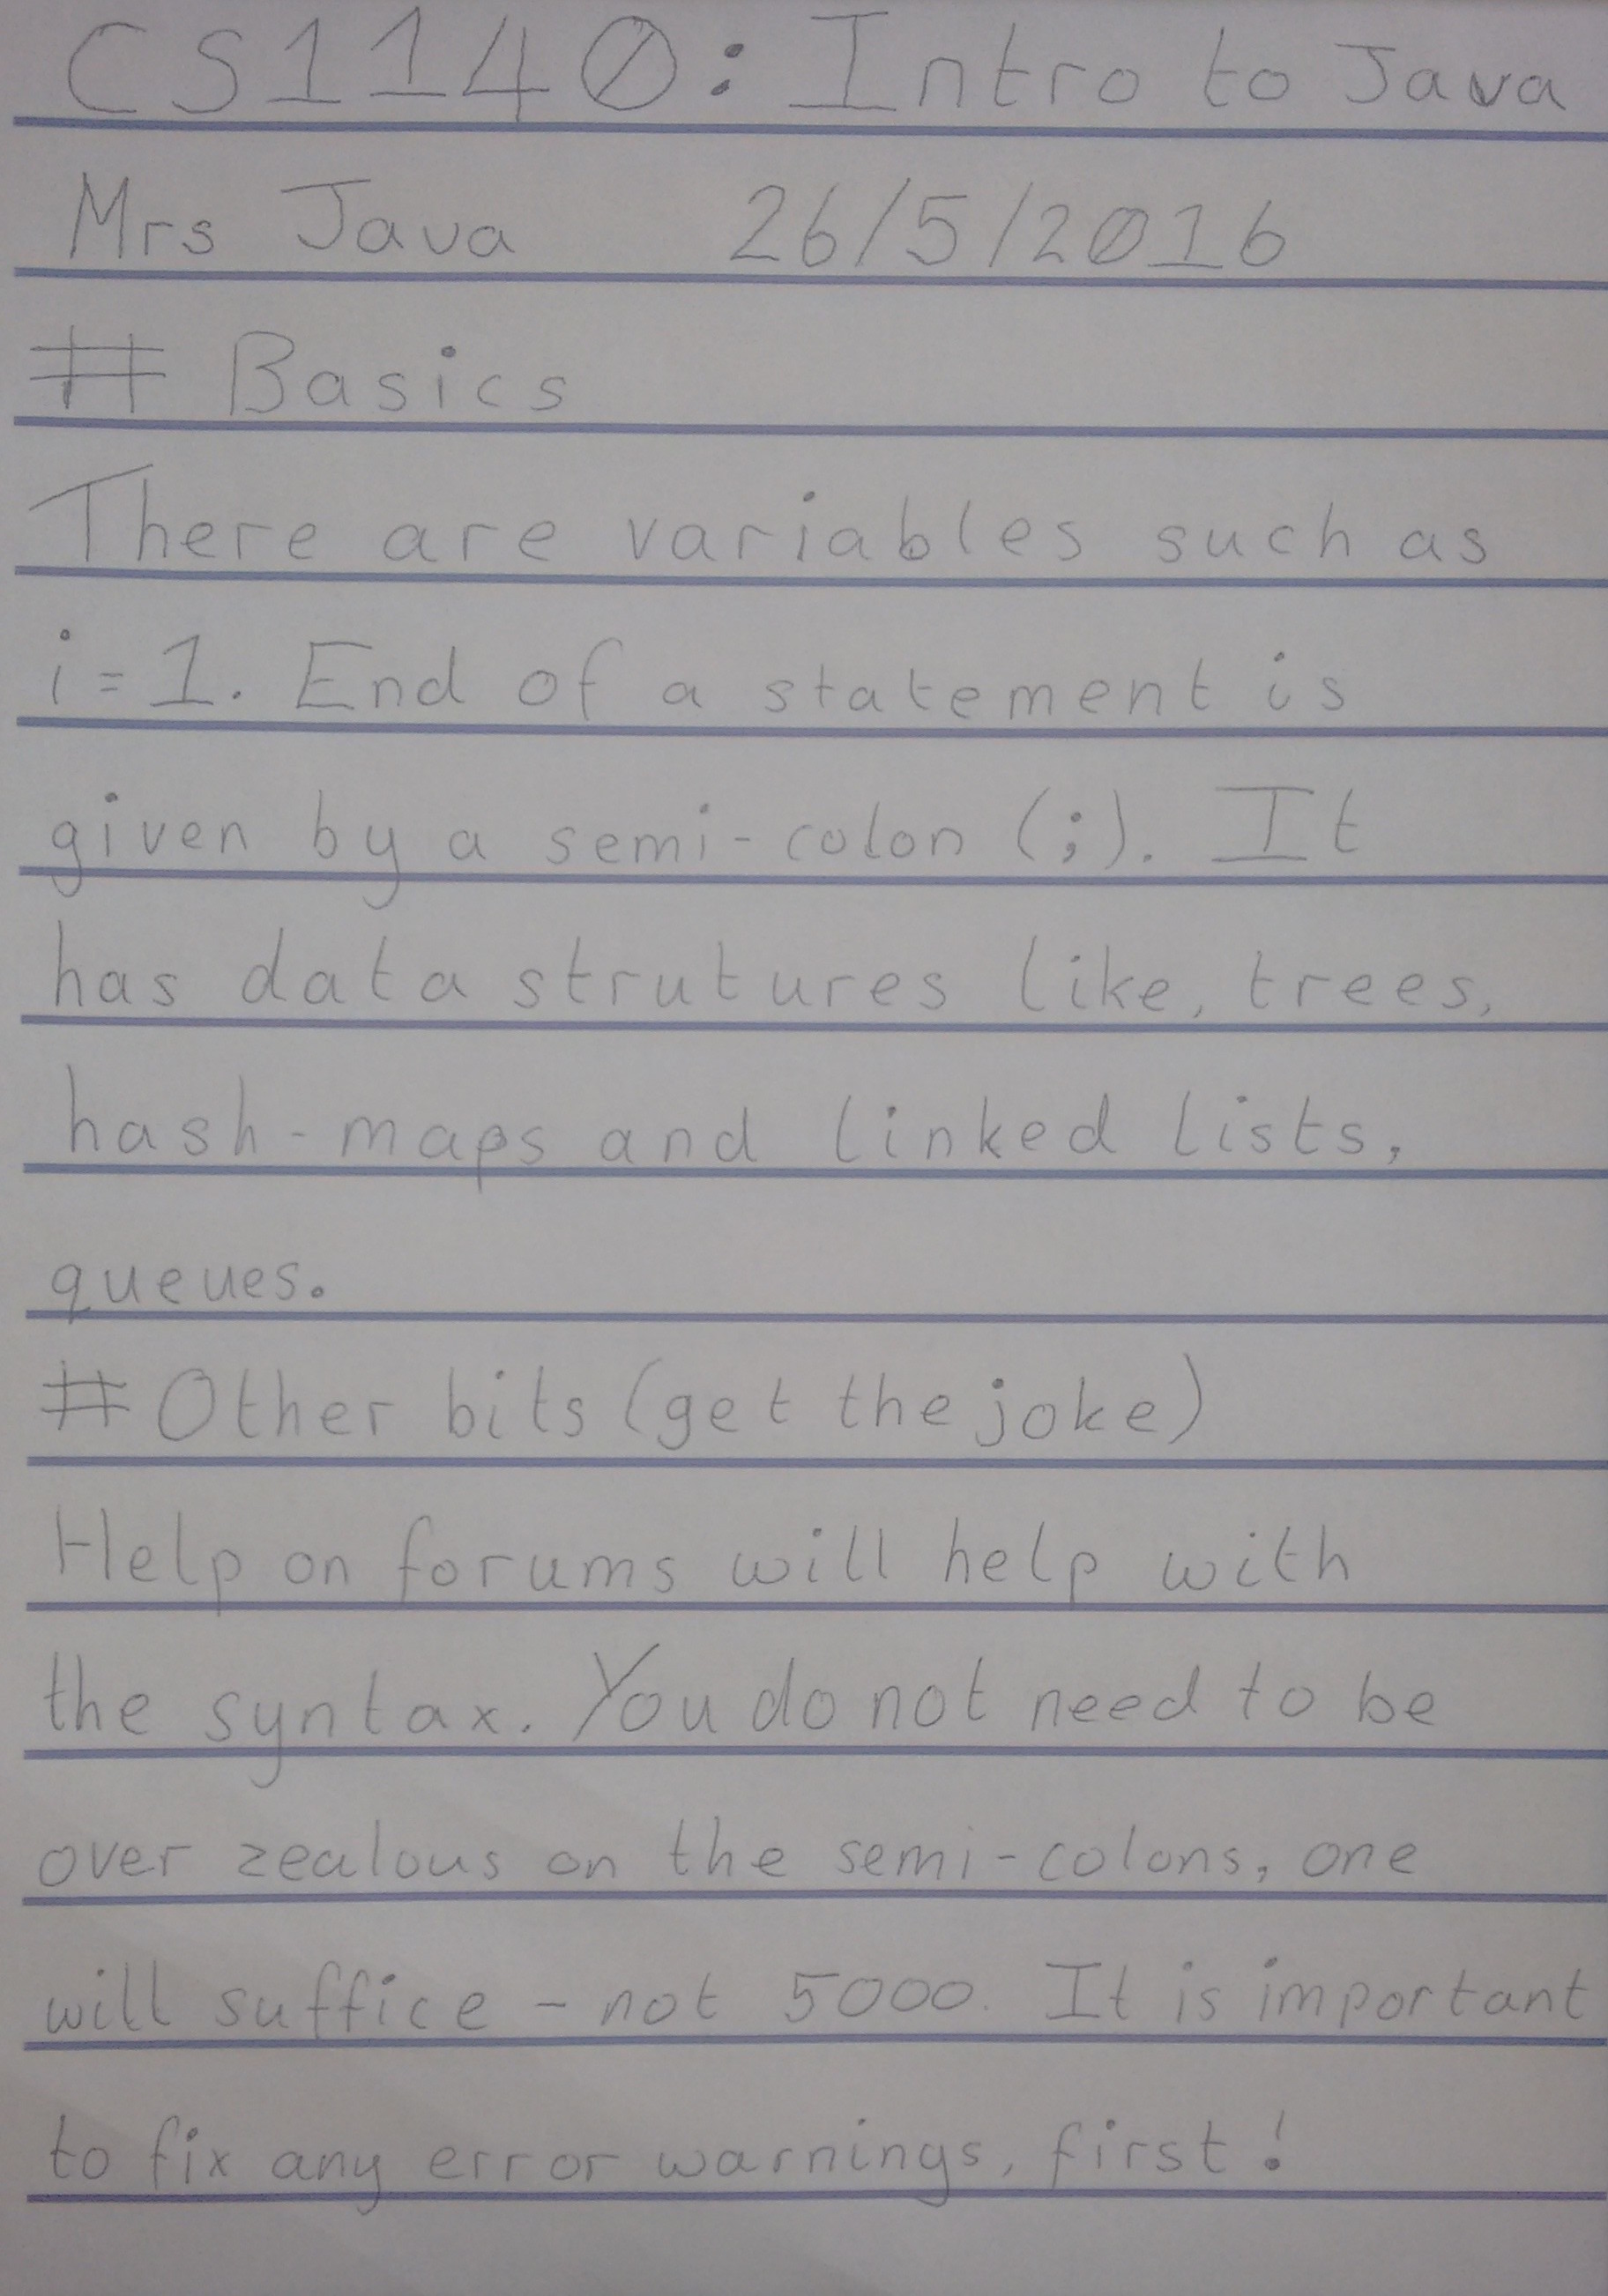 CS1140: Intro to Java
Mrs Java 26/5/2016
# Basics
There are variables such as
i = 1. End of a statement is
given by a semi-colon (;). It
has data strutures like, trees,
hash-maps and linked lists,
queues.
# Other bits (get the joke)
Help on forums will help with
the syntax. You do not need to be
over zealous on the semi-colons, one
will suffice - not 5000. It is important
to fix any error warnings, first!